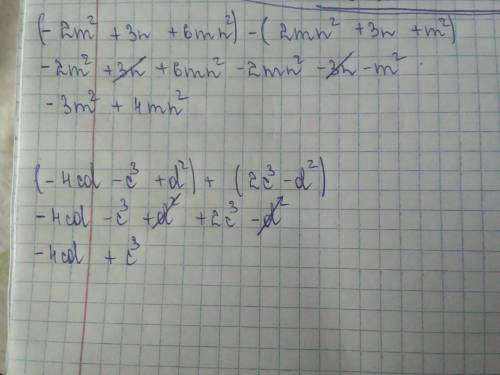 (-2m² + 3n + 6mn²) - (2mn² + 3n + m²)
-2m² + 3n + 6mn² - 2mn² - 3n - m²
-3m² + 4mn²
(-4cd - c³ + d²) + (2c³ - d²)
-4cd - c³ + d² + 2c³ - d²
-4cd + c³